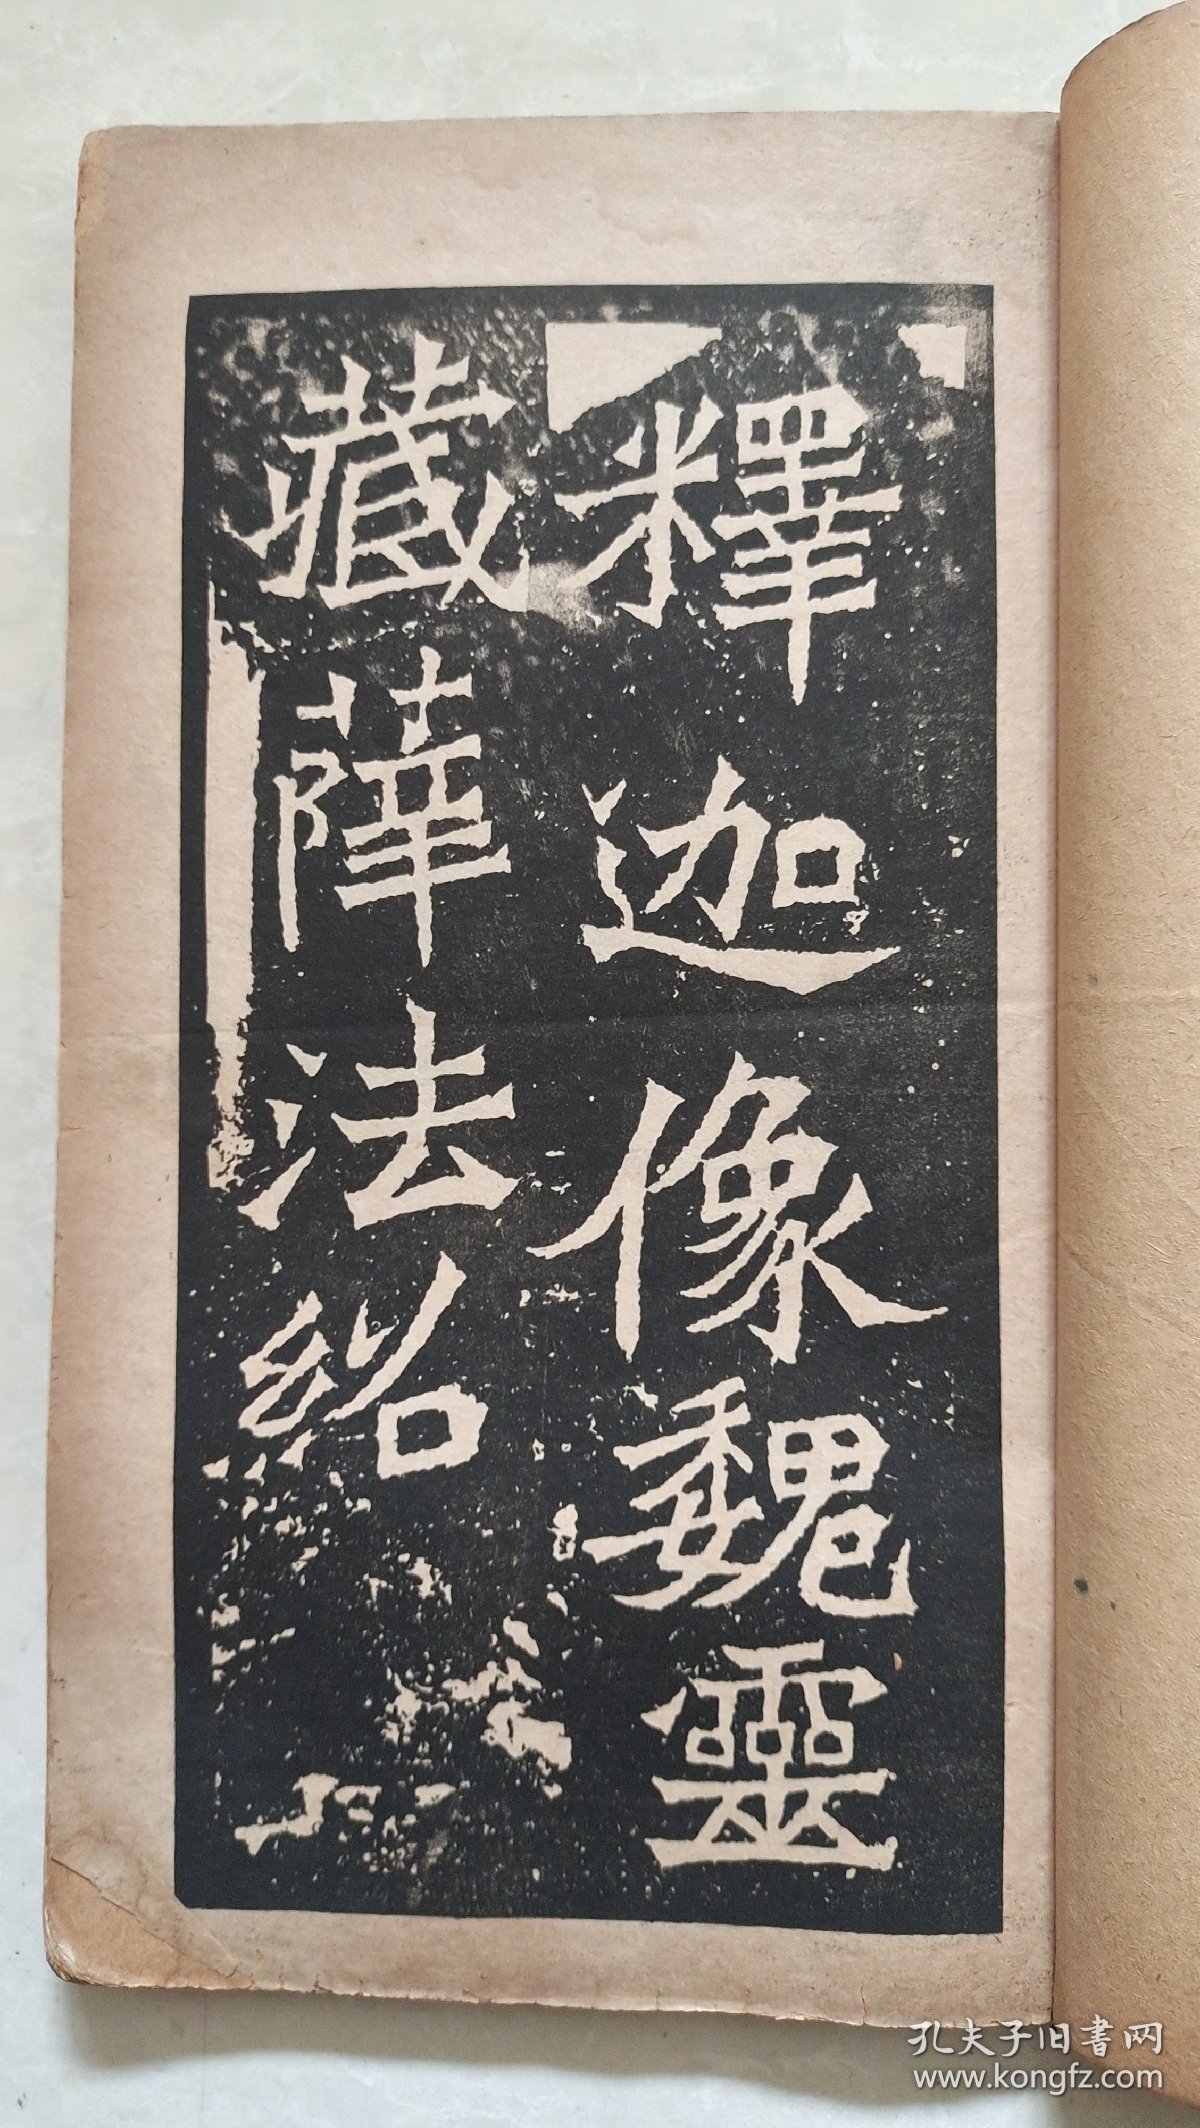 釋迦像魏靈
藏薛法紹
孔夫子旧书网
www.kongfz.com